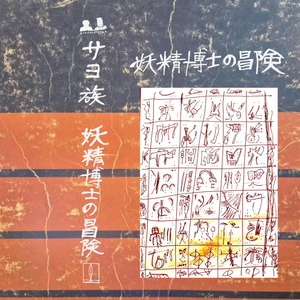 妖精博士の冒険
サヨ族
妖精博士の冒険